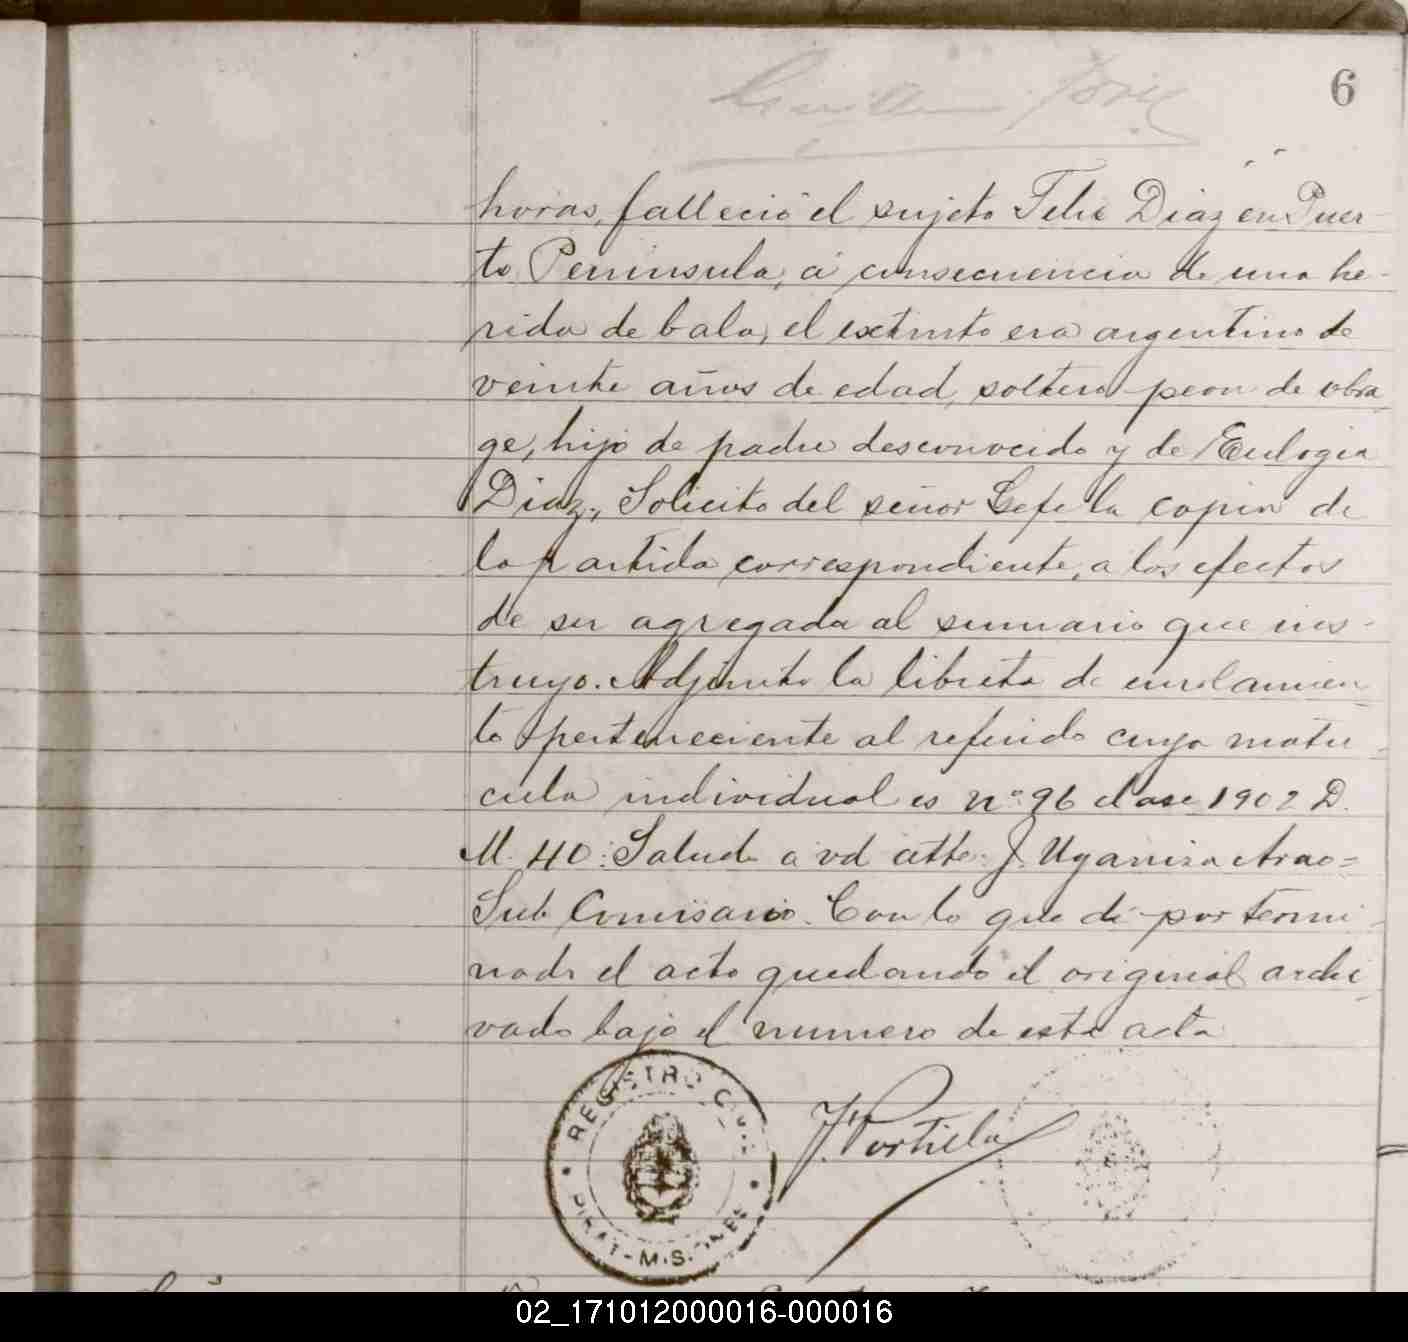 6
horas, falleció el sujeto Felis Diaz en Puer-
to Peninsula, á consecuencia de una he-
rida de bala, el extinto era argentino de
veinte años de edad, soltero peon de obra
ge, hijo de padre desconocido y de Eulogia
Diaz., Solicito del señor Gefe la copia de
la partida correspondiente, a los efectos
de ser agregada al sumario que ins-
truyo. Adjunto la libreta de enrolamien
to perteneciente al referido cuya matri-
cula individual es nº 96 clase 1902 D.
M. 40: Saludo a vd atte. J.
Sub Comisario. Con lo que di por termi-
nado el acto quedando el original archi-
vado bajo el numero de esta acta
REGISTRO CIVIL
J. Portillo
MISIONES
02_171012000016-000016